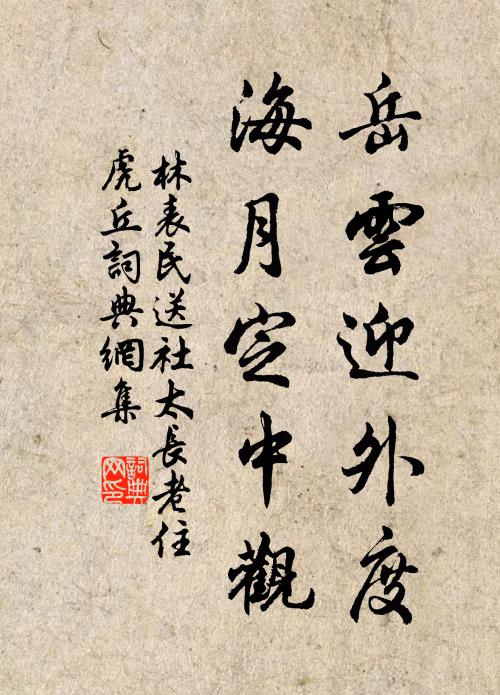 岳雲迎外度
海月定中觀
林表民送社太長老住
虎丘詞典網集
詞典網印